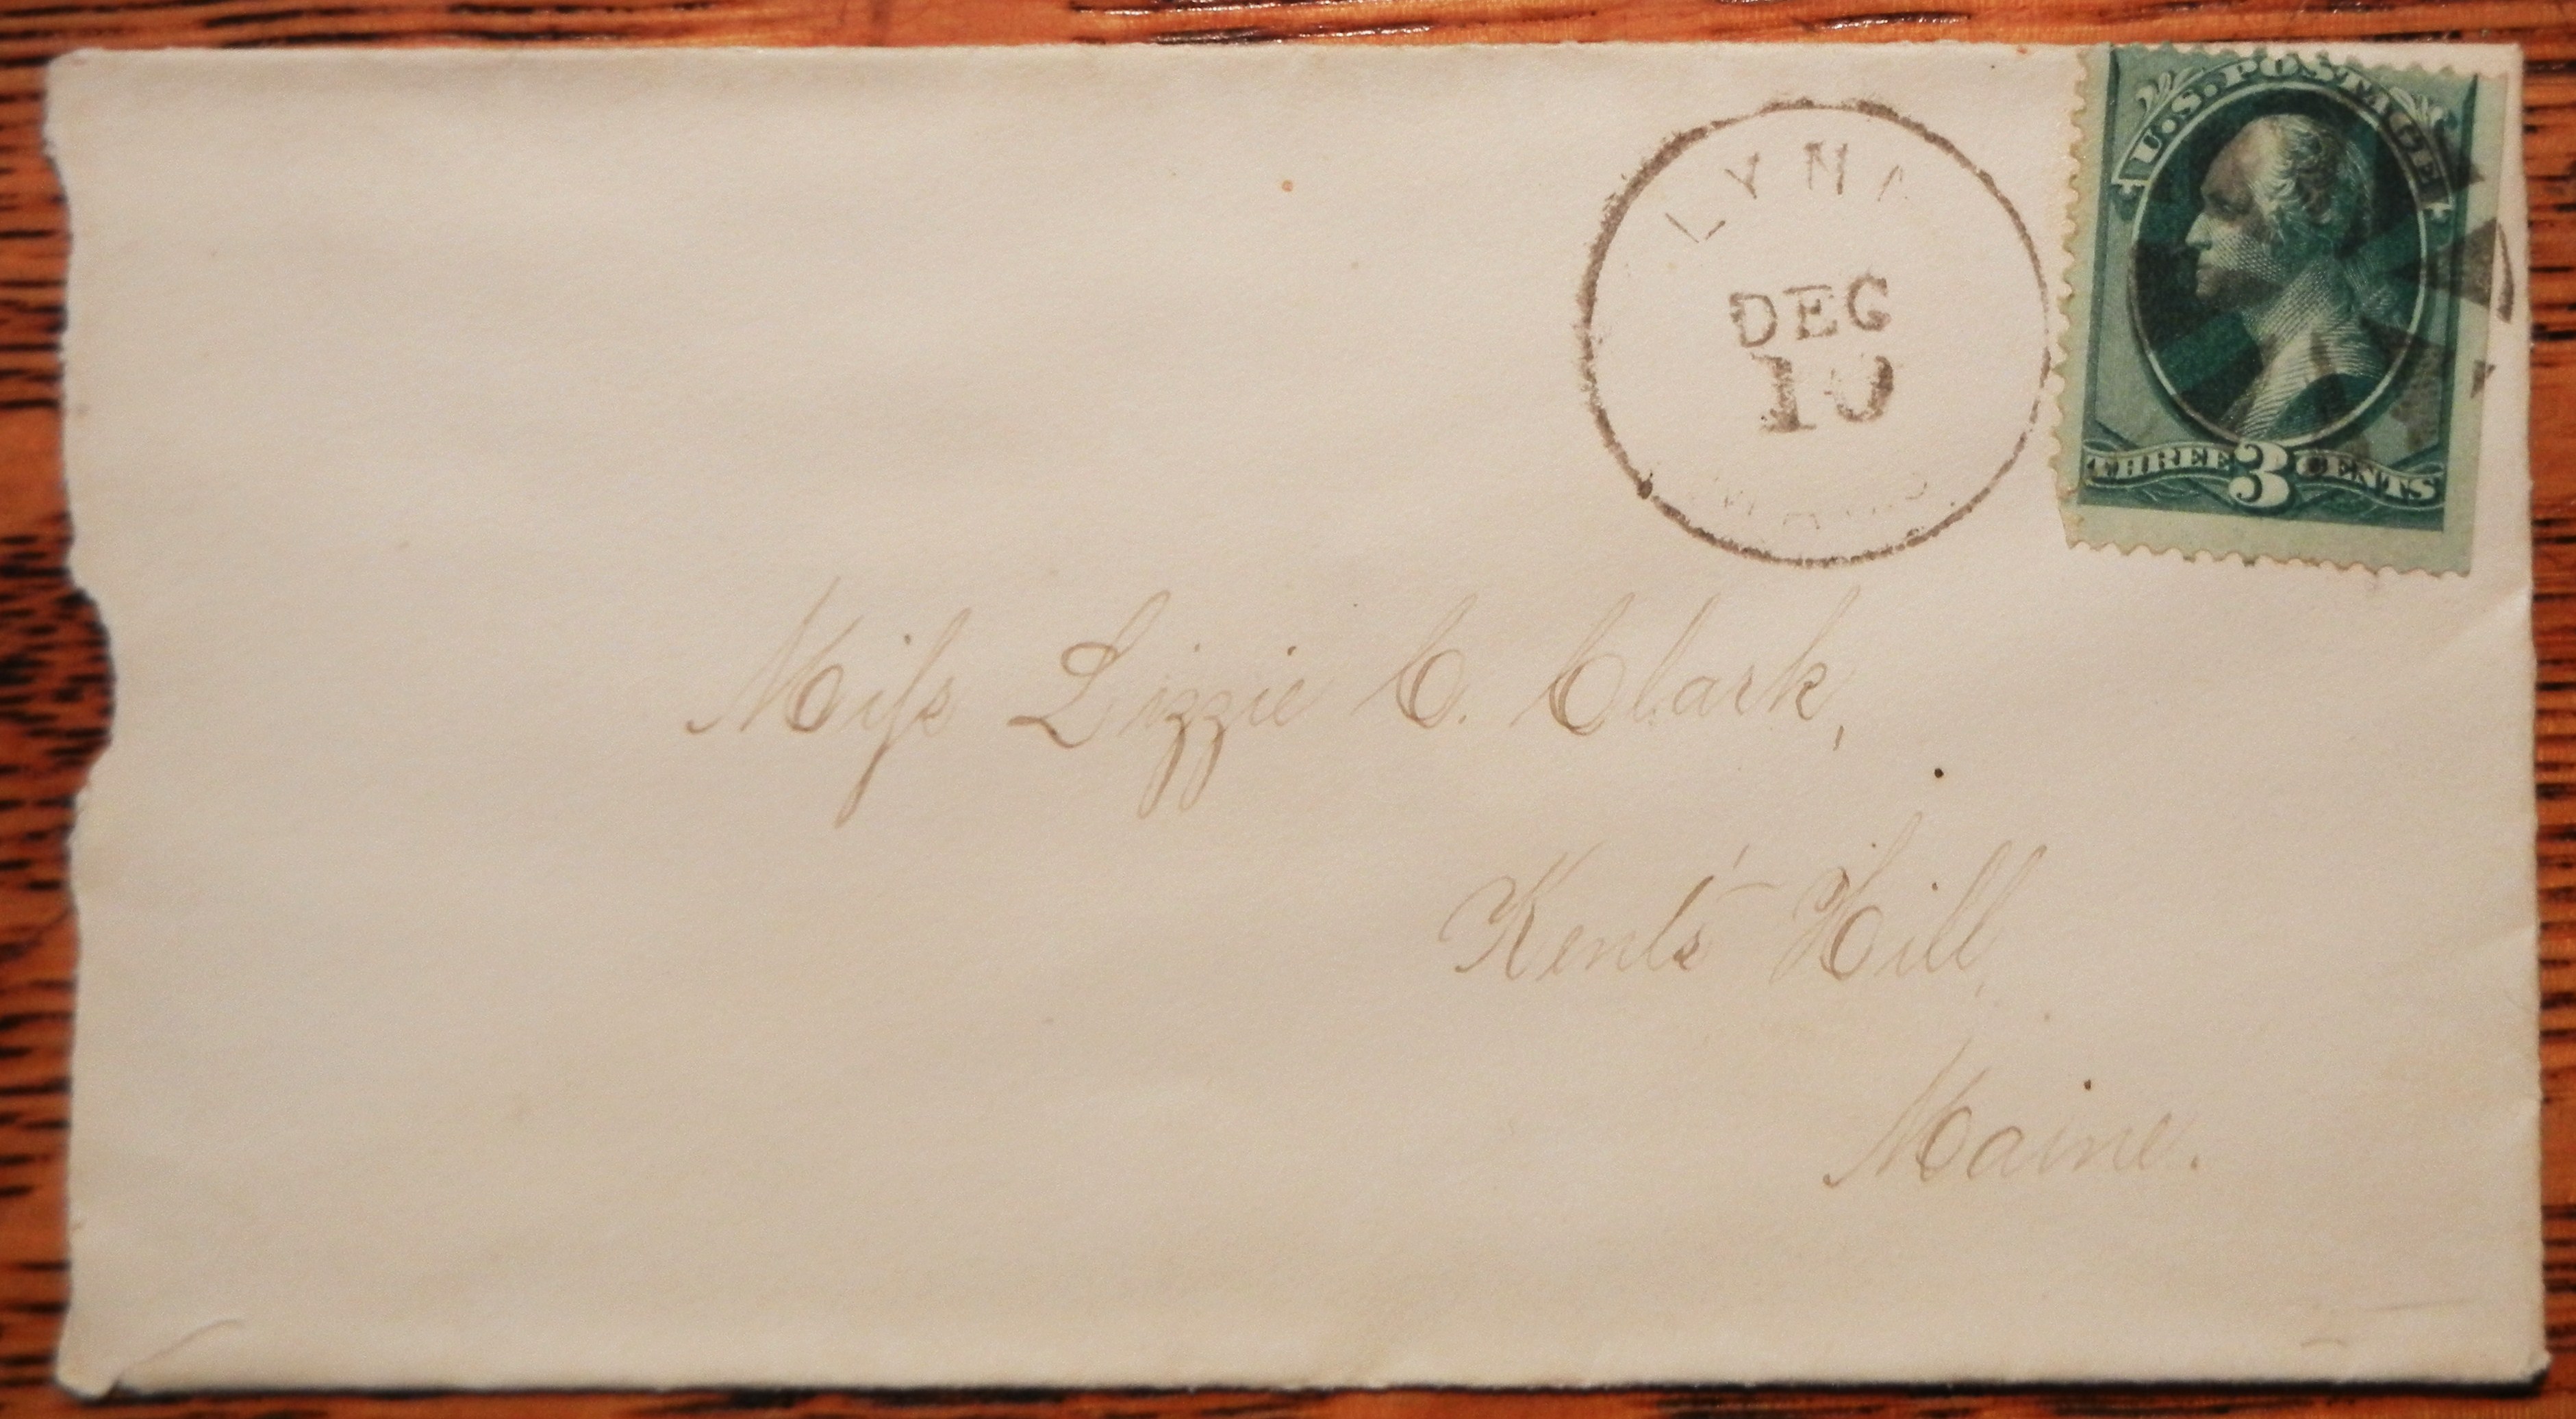 U.S. POSTAGE
LYNN
DEC
10
MASS
THREE 3 CENTS
Miſs Lizzie C. Clark,
Kent's Hill
Maine.